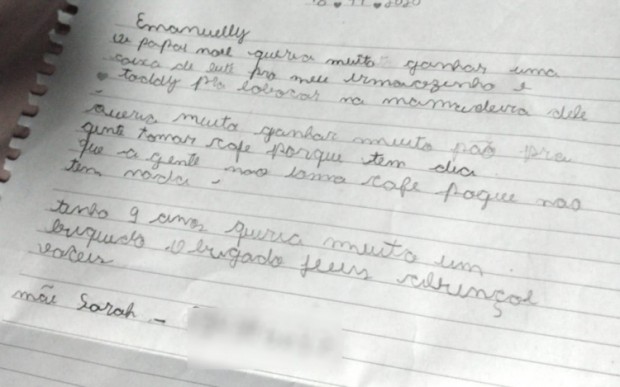 Emanuelly
papai noel queria muito ganhar uma
caixa de leite pro meu irmaozinho e
o toddy pra colocar na mamadeira dele
queria muito ganhar muito pão pra
gente tomar cafe porque tem dia
que a gente nao toma cafe poque nao
tem nada.
tenho 9 anos queria muito um
briquedo obrigado jeus abençoe
voceis
mãe Sarah -